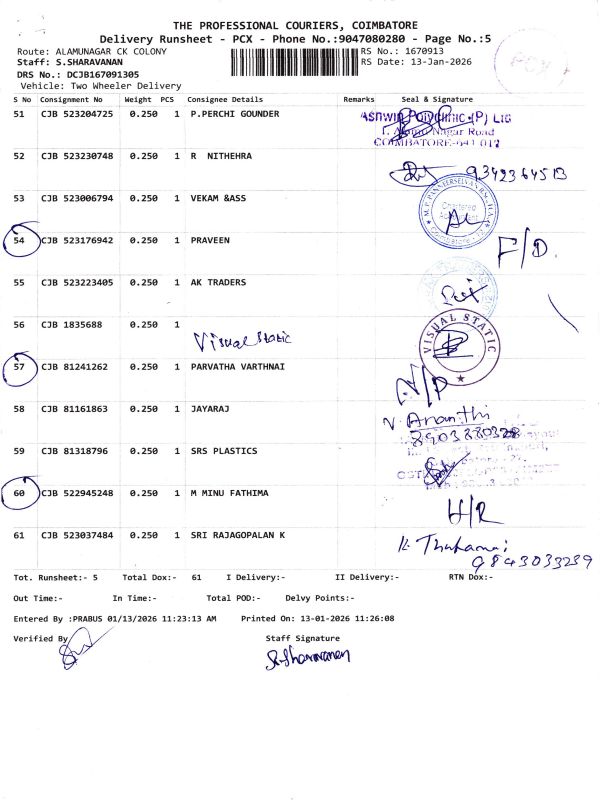 THE PROFESSIONAL COURIERS, COIMBATORE
Delivery Runsheet - PCX - Phone No.:9047080280 - Page No.:5
Route: ALAMUNAGAR CK COLONY RS No.: 1670913
Staff: S.SHARAVANAN RS Date: 13-Jan-2026
DRS No.: DCJB167091305
Vehicle: Two Wheeler Delivery
PCX
S No Consignment No Weight PCS Consignee Details Remarks Seal & Signature
51 CJB 523204725 0.250 1 P.PERCHI GOUNDER
ASHWIN POLYCLINIC (P) Ltd
Nagar Road
COIMBATORE-641 012
52 CJB 523230748 0.250 1 R NITHEHRA
9342364513
53 CJB 523006794 0.250 1 VEKAM &ASS
Chartered
54 CJB 523176942 0.250 1 PRAVEEN F/D.
55 CJB 523223405 0.250 1 AK TRADERS
56 CJB 1835688 0.250 1 Visual Static
VISUAL STATIC
57 CJB 81241262 0.250 1 PARVATHA VARTHNAI N/P
58 CJB 81161863 0.250 1 JAYARAJ
V. Ananthi
8903880328
59 CJB 81318796 0.250 1 SRS PLASTICS
60 CJB 522945248 0.250 1 M MINU FATHIMA H/R
61 CJB 523037484 0.250 1 SRI RAJAGOPALAN K
9843033239
Tot. Runsheet:- 5 Total Dox:- 61 I Delivery:- II Delivery:- RTN Dox:-
Out Time:- In Time:- Total POD:- Delvy Points:-
Entered By :PRABUS 01/13/2026 11:23:13 AM Printed On: 13-01-2026 11:26:08
Verified By Staff Signature
S.Sharavanan